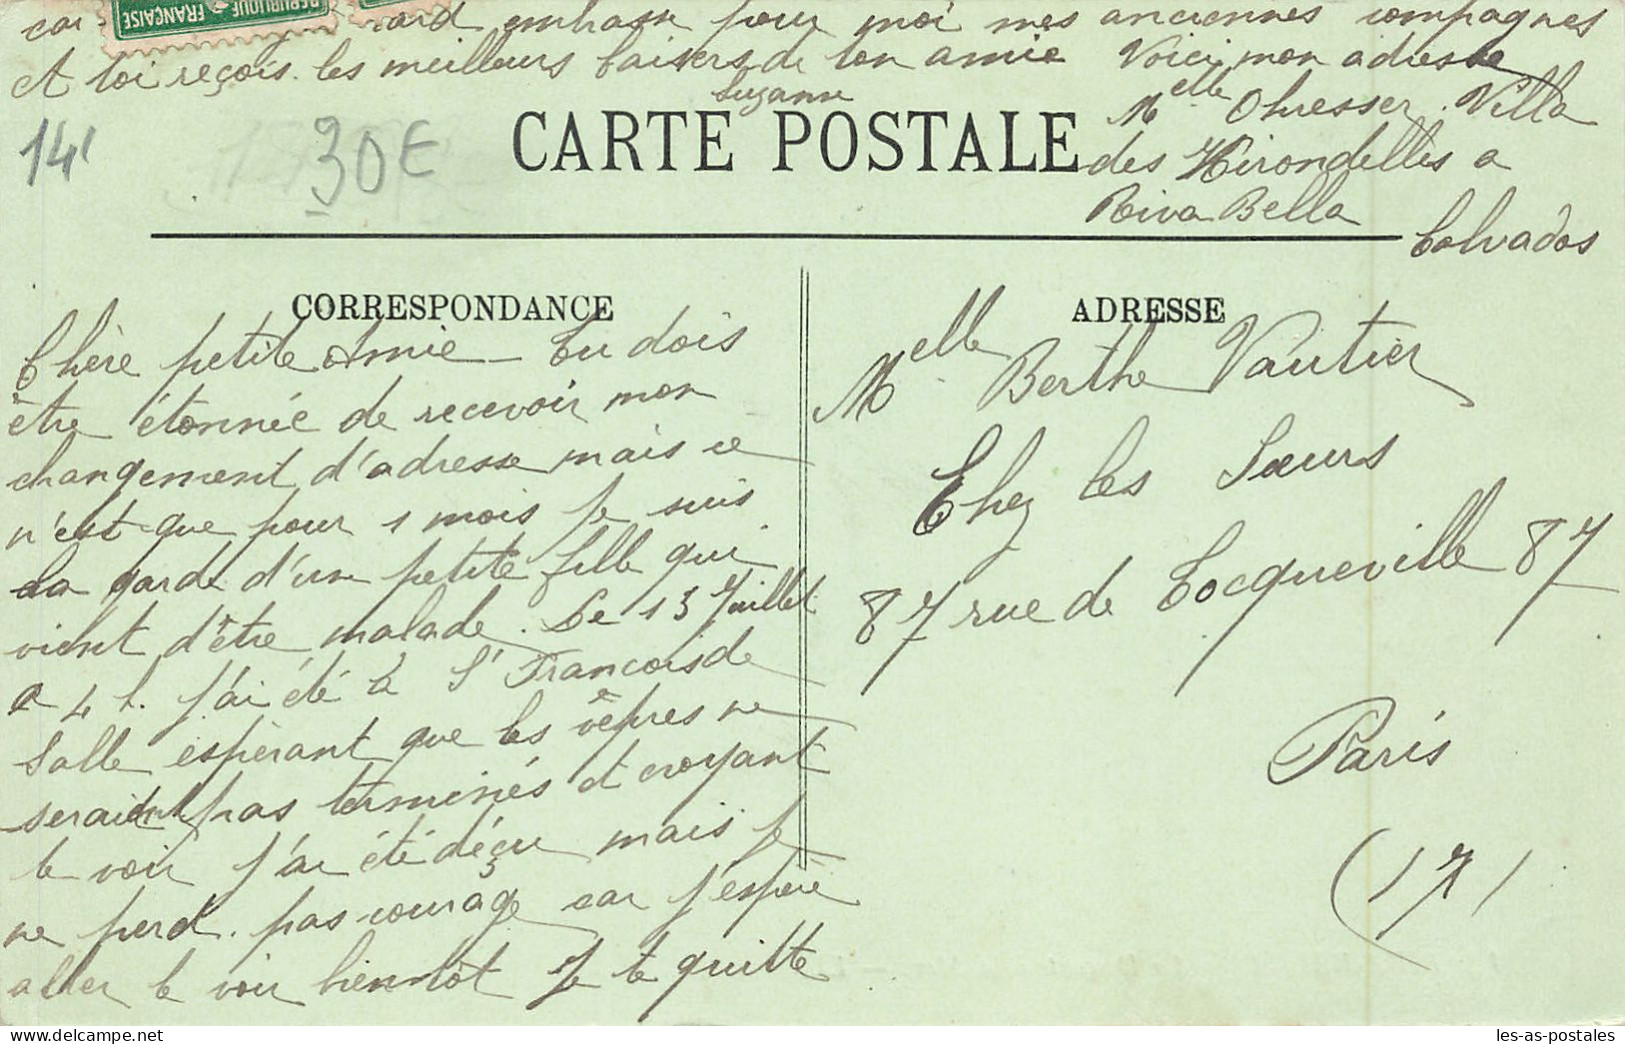 car ard embrasse pour moi mes anciennes compagnes
Et toi reçois les meilleurs baisers de ton amie Voici mon adresse
Suzanne
Melle Ohresser Villa
des Hirondelles a
Riva Bella
Calvados
REPUBLIQUE FRANÇAISE
141
30€
CARTE POSTALE
CORRESPONDANCE
Chère petite Amie – Tu dois
être étonnée de recevoir mon
changement d'adresse mais ce
n'est que pour 1 mois Je suis
la garde d'un petite fille qui
vient d'être malade. Le 13 Juillet
a 4 h. j'ai été à St Francois de
Salle espèrant que les vêpres ne
seraient pas terminés et croyant
te voir j'ai été déçu mais je
ne perd pas courage car j'espère
aller te voir bientôt Je te quitte
ADRESSE
Melle Berthe Vautier
Chez les Sœurs
87 rue de Tocqueville 87
Paris
(17)
les-as-postales.com